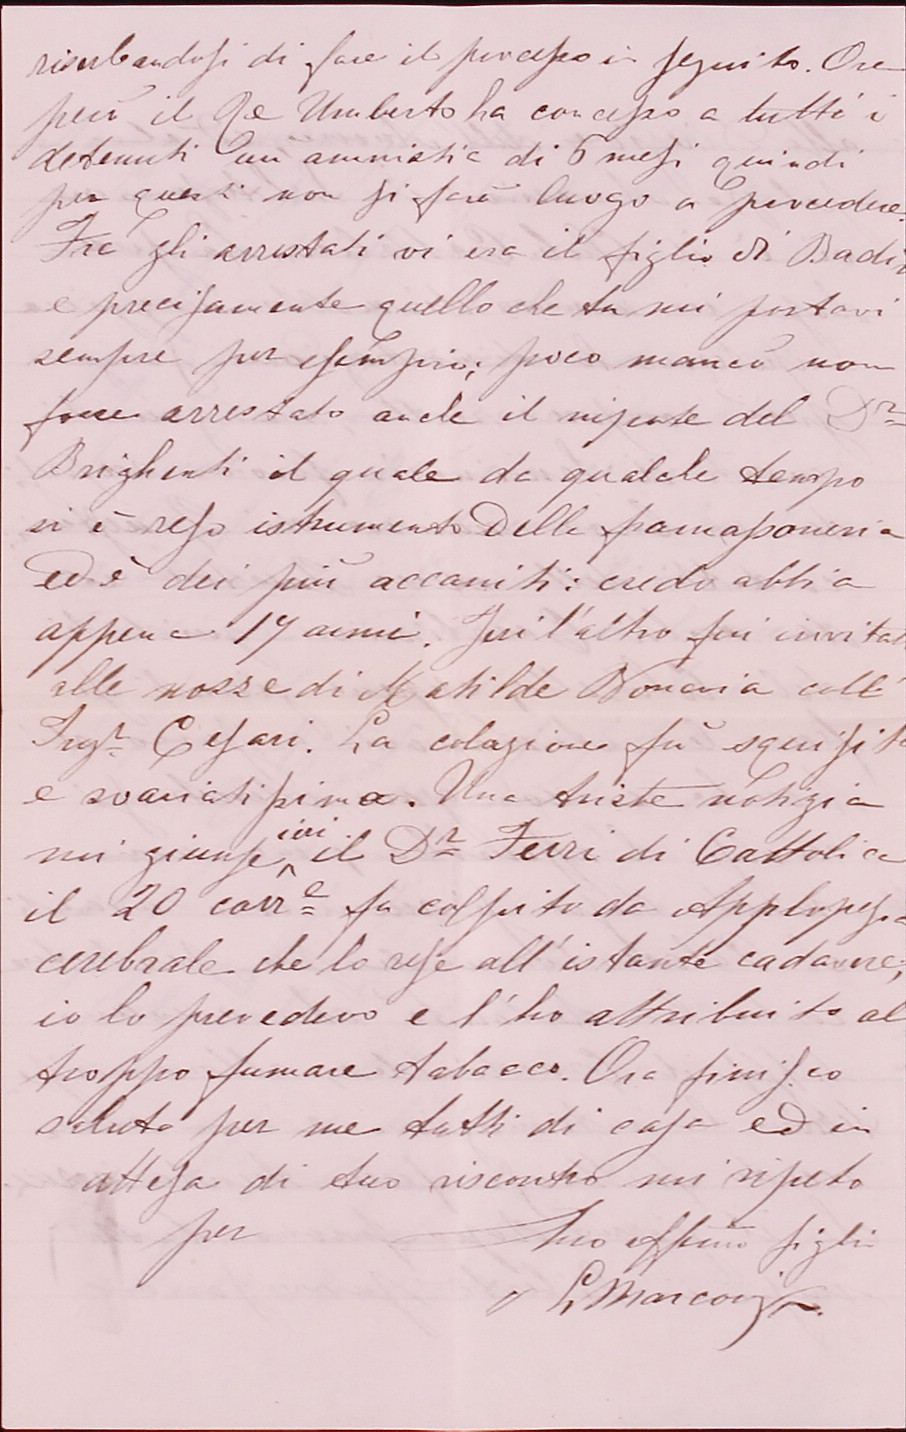 riserbandosi di fare il processo in seguito. Ora
però il Re Umberto ha concesso a tutti i
detenuti un'amnistia di 6 mesi quindi
per questi non si farà luogo a procedere.
Fra gli arrestati vi era il figlio di Badi
e precisamente quello che tu mi portavi
sempre per esempio; poco mancò non
fosse arrestato anche il nipote del Dr
Brighenti il quale da qualche tempo
si è reso istrumento della framassoneria
ed è dei più accaniti: credo abbia
appena 17 anni. Jeri l'altro fui invitat
alle nozze di Matilde Bonavia coll'
Ingr Cesari. La colazione fù squisita
e svariatissima. Una triste notizia
mi giunse ieri il Dr Ferri di Cattolica
il 20 corre fu colpito da Applopessia
cerebrale che lo rese all'istante cadavere;
io lo prevedevo e l'ho attribuito al
troppo fumare tabacco. Ora finisco
saluta per me tutti di casa ed in
attesa di tuo riscontro mi ripeto
per tuo Affmo figlio